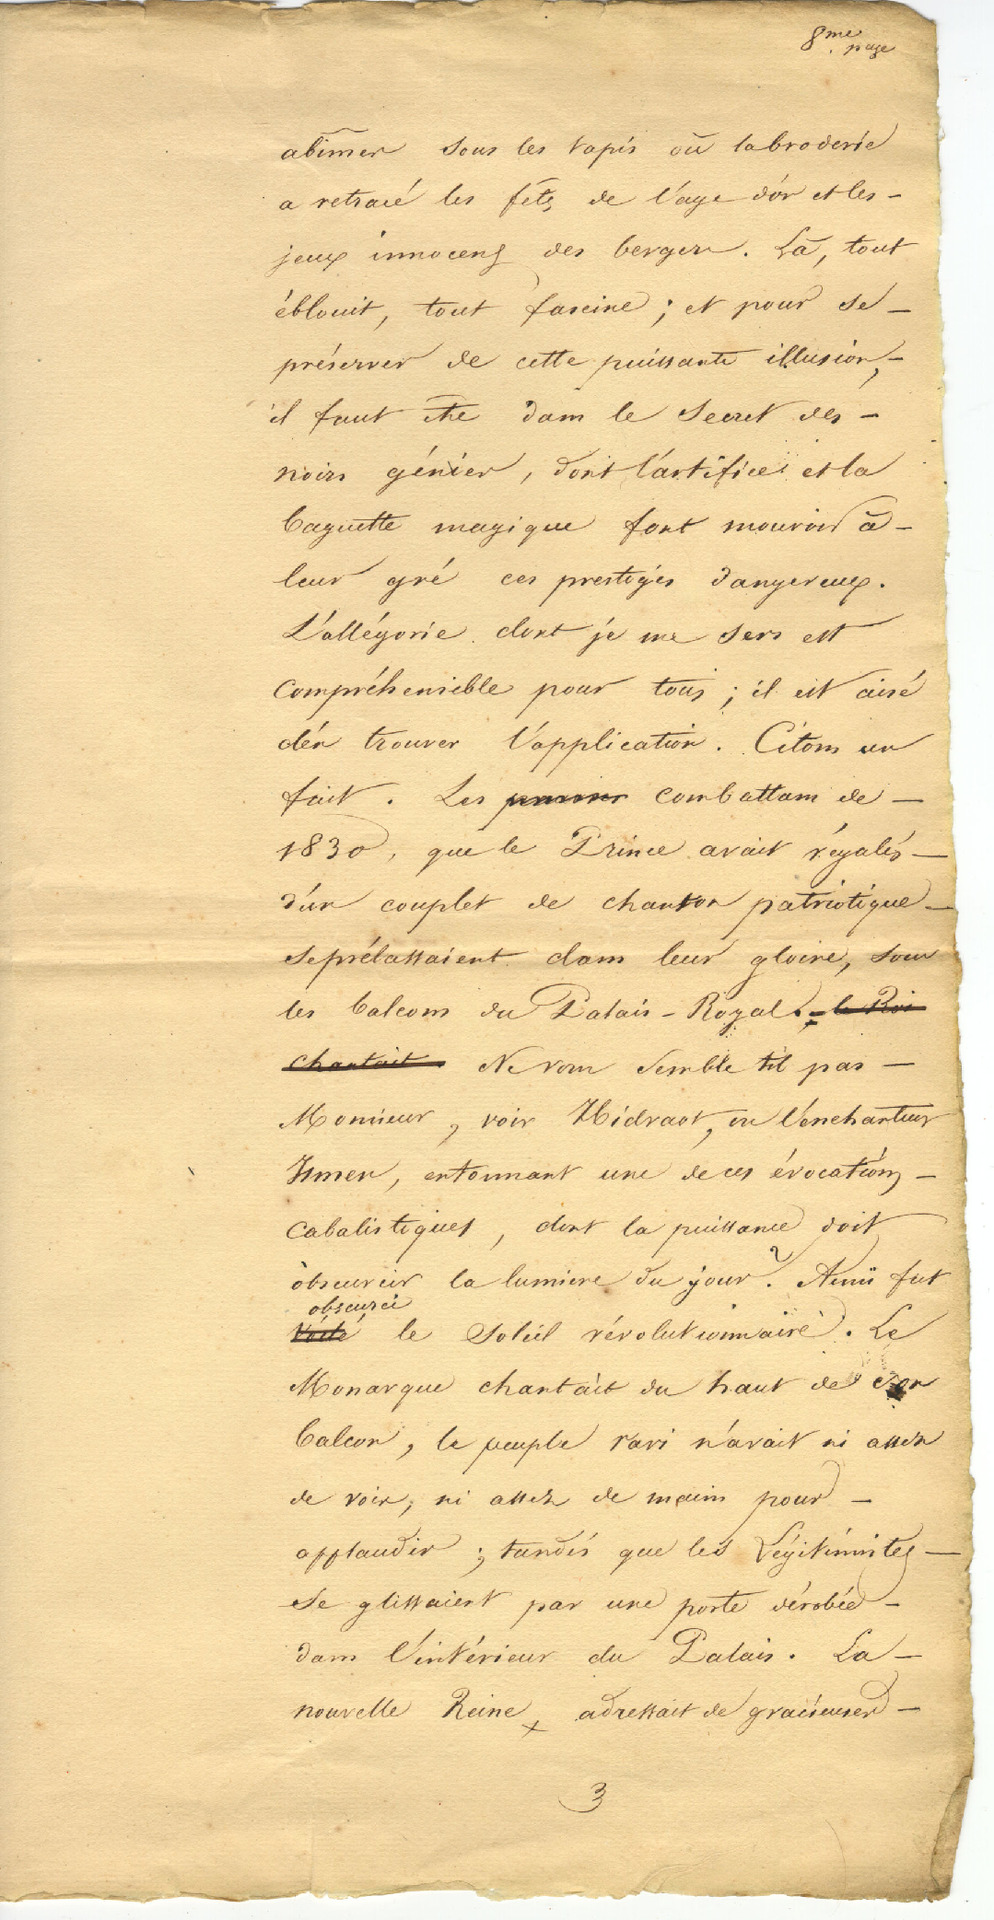 8me
page
abîmer sous les tapis où la broderie
a retracé les fêtes de l'age d'or et les
jeux innocens des bergers. Là, tout
éblouit, tout fascine ; et pour se
préserver de cette puissante illusion,
il faut être dans le secret des
noirs génies, dont l'artifice et la
baguette magique font mouvoir à
leur gré ces prestiges dangereux.
L'allégorie dont je me sers est
compréhensible pour tous ; il est aisé
d'en trouver l'application. Citons un
fait. Les combattans de
1830, que le Prince avait régalés
d'un couplet de chanson patriotique
se prélassaient dans leur gloire, sous
les balcons du Palais-Royal. le Roi
chantait Ne vous semble t'il pas
Monsieur, voir Hidraot, ou l'enchanteur
Ismen, entonnant une de ces évocations
cabalistiques, dont la puissance doit
obscurcir la lumiere du jour ? Ainsi fut
obscurci
voilé le Soleil révolutionnaire. Le
Monarque chantait du haut de son
balcon, le peuple ravi n'avait ni assez
de voix, ni assez de mains pour
applaudir ; tandis que les Légitimistes
se glissaient par une porte dérobée
dans l'intérieur du Palais. La
nouvelle Reine x adressait de gracieuses
3